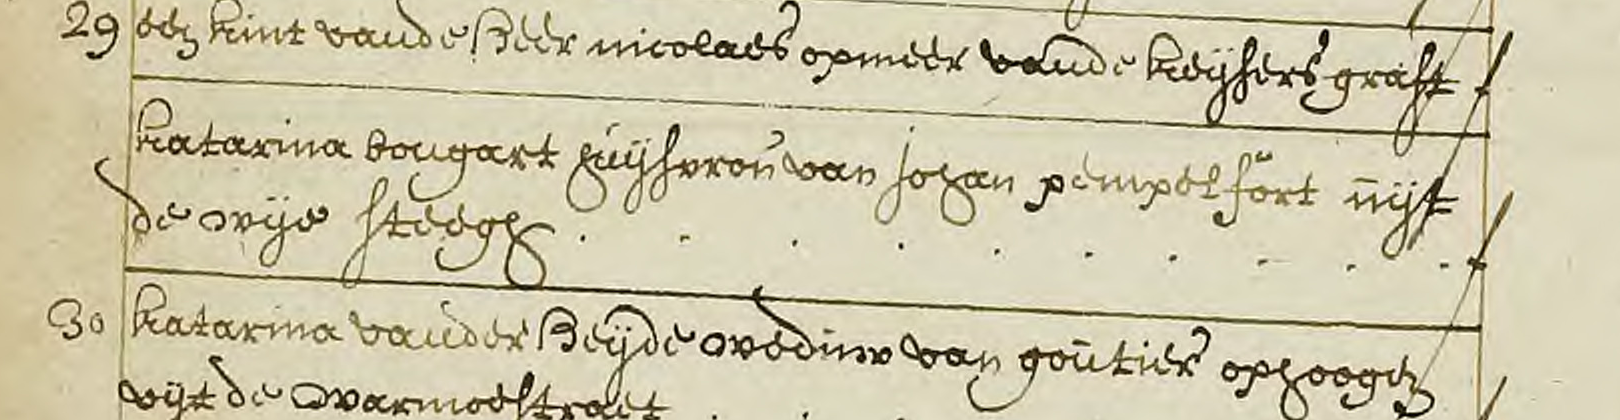 29 een kint vande heer nicolaes opmeer vande keijsers graft
katarina bougart huijsvrou van johan pempelfort uijt
de wije steegh
30 katarina vander heijde weduw van goutier ophoogen
uijt de warmoestraet